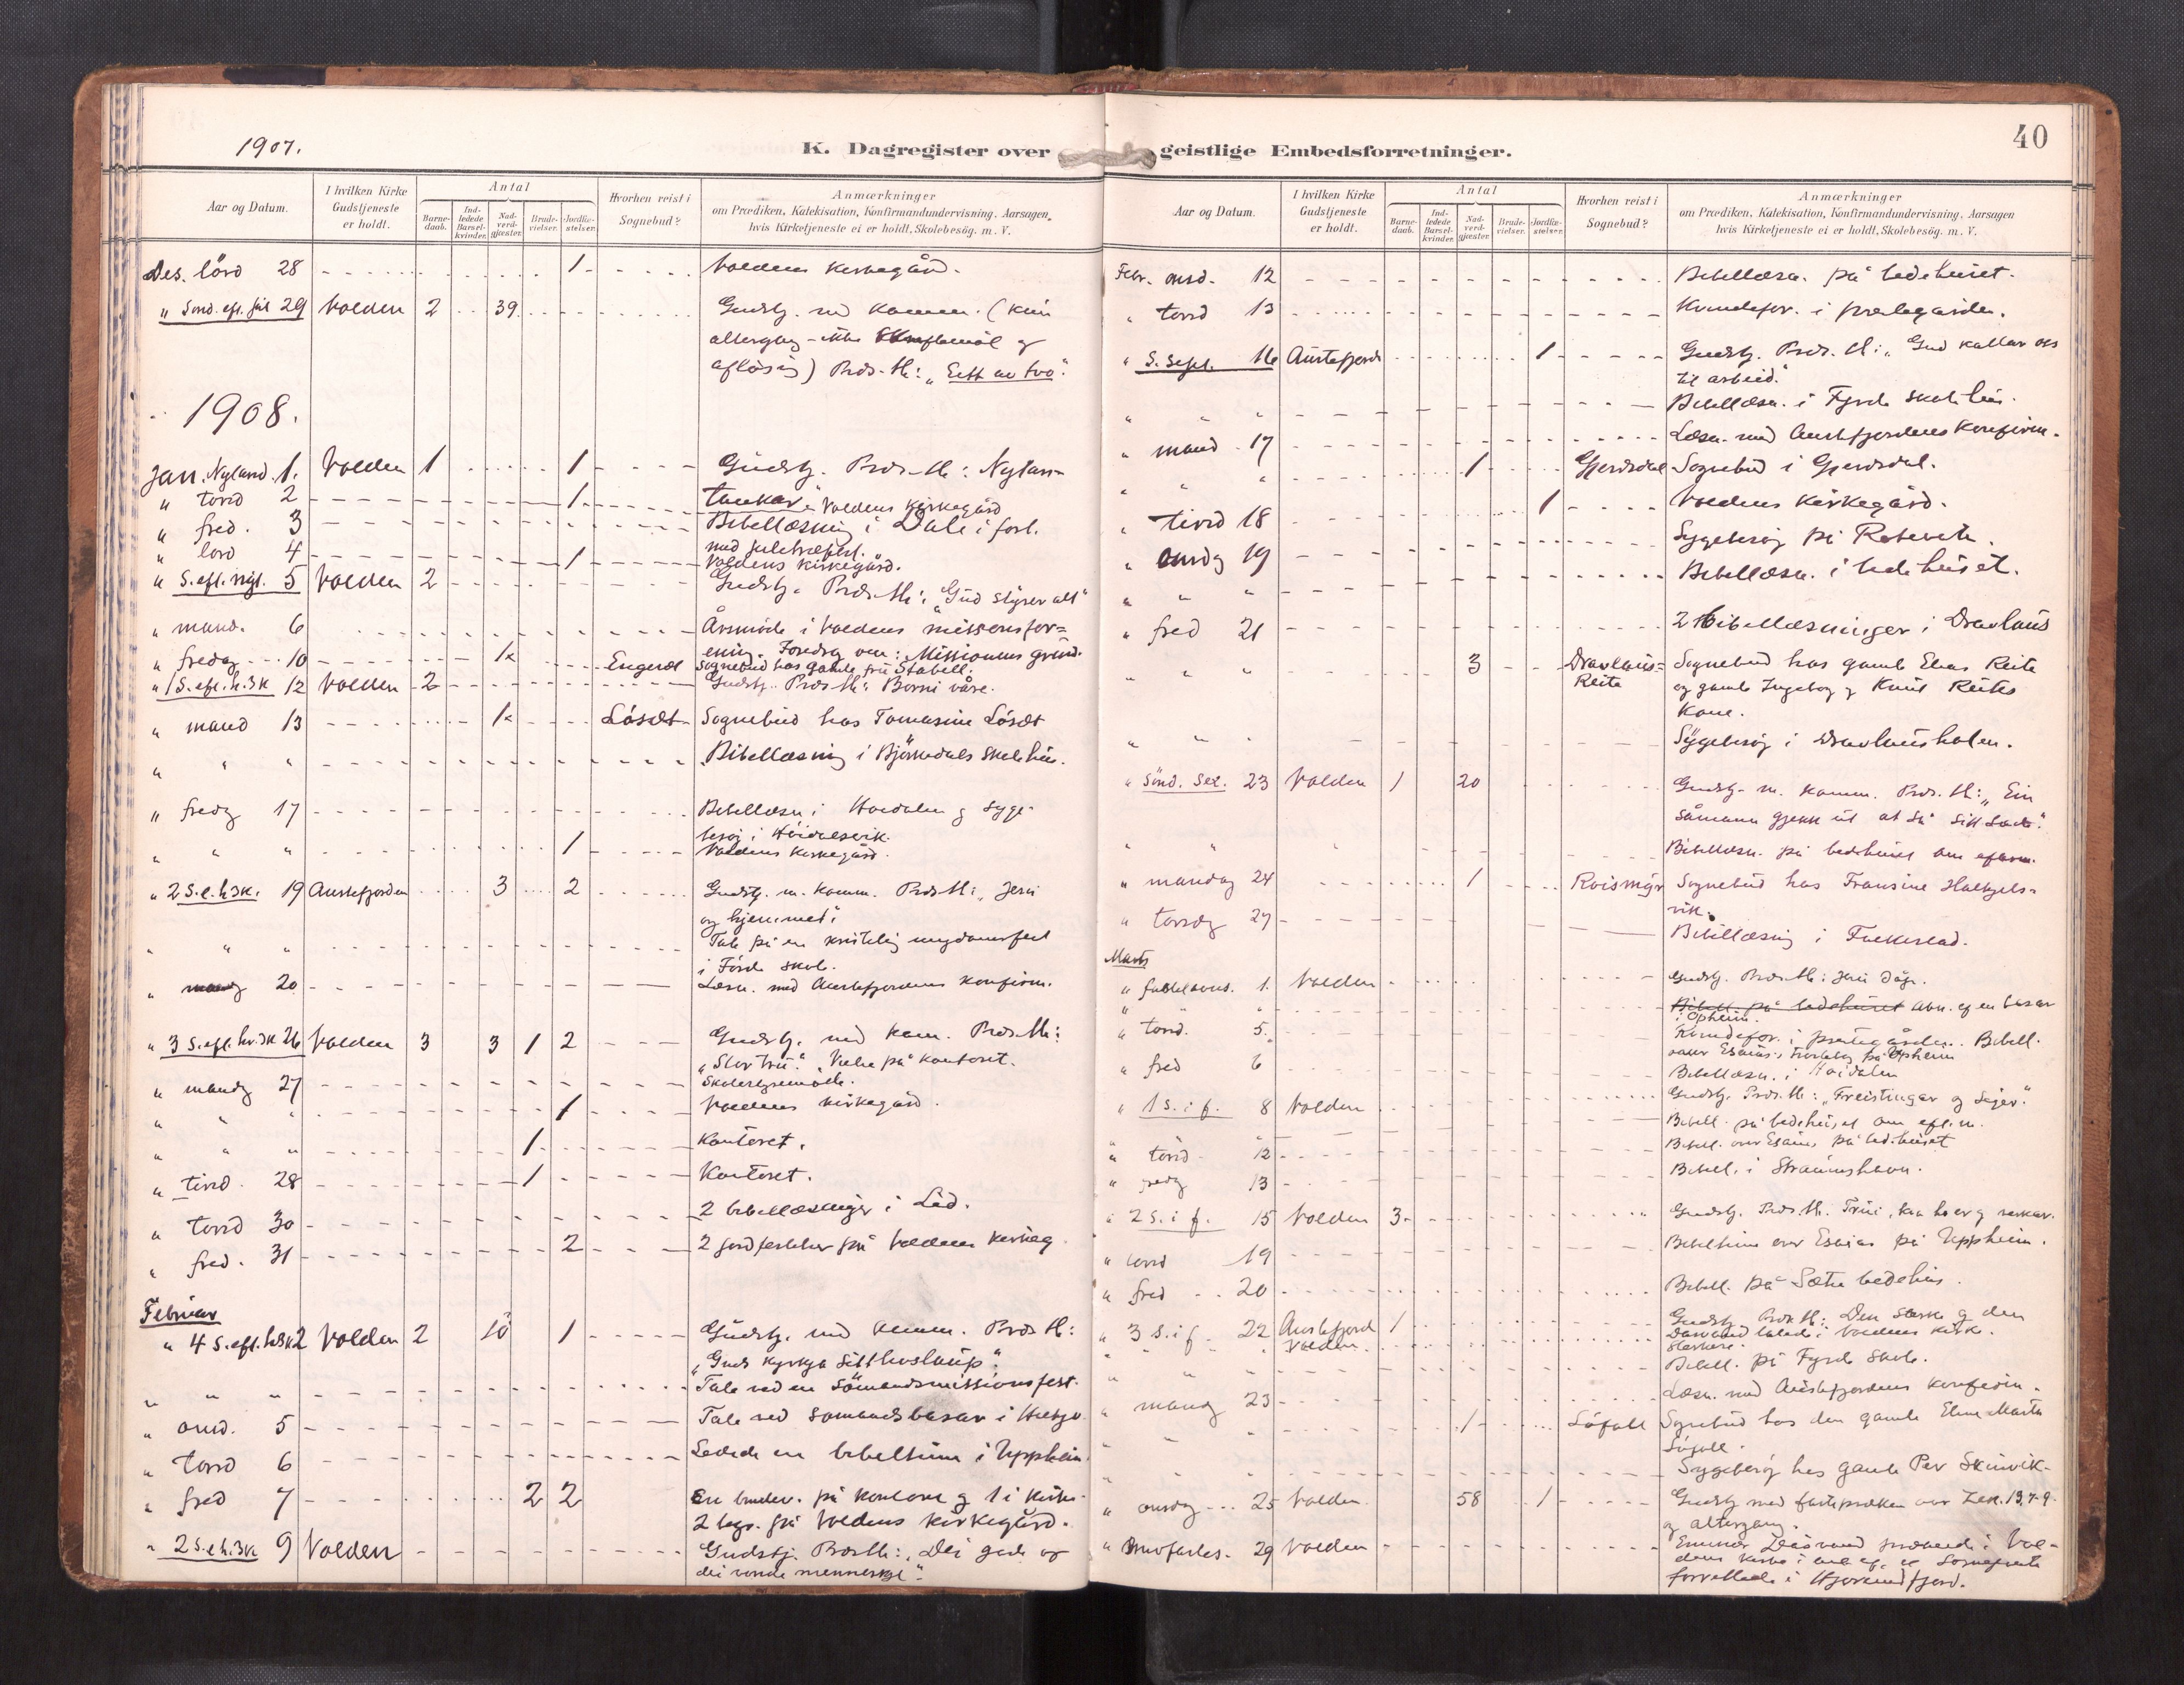 1907.
K. Dagregister over
Aar og Datum.
I hvilken Kirke Gudstjeneste er holdt.
Antal
Barne-daab.
Ind-ledede Barsel-kvinder.
Nad-verd-gjæster.
Brude-vielser.
Jordfæ-stelser.
Hvorhen reist i Sognebud?
Anmærkninger
om Prædiken, Katekisation, Konfirmandundervisning, Aarsagen,
hvis Kirketjeneste ei er holdt, Skolebesög. m. V.
Des. lörd 28 1 Voldens kirkegård.
" Sönd. eft. jul 29 Volden 2 39 Gudstj. med komm. (kun
altergang - ikke
aflösing) Præs. th: "Eitt av tvo".
1908.
Jan. Nylaarsd. 1. Volden 1 1 Gudstj. Præs. th: Nytaars-
" torsd 2 1 tankar". Voldens kirkegård
" fred. 3 Bibellæsning i Dale i forb.
med juletræfest.
" lörd 4 1 Voldens kirkegård.
" S. eft. nyt. 5 Volden 2 Gudstj. Præs. th: "Gud styrer alt"
" mand. 6 Årsmöde i Voldens missionsfor=
ening. Foredrag om: Missionens grund.
" fredag 10 1k Engeset Sognebud hos gamle fru Stabell.
" 1 S. eft. h. 3k 12 Volden 2 Gudstj. Præs. th: Borni våre.
" mand 13 1k Lösæt Sognebud hos Tomasine Lösæt
" " " Bibellæsning i Björkedals skolehus.
" fredag 17 Bibellæsn. i Hovdalen og syge-
besög i Höidalsvik.
" " " 1 Voldens kirkegård.
" 2 S. e. h. 3k. 19 Austefjorden 3 2 Gudstj. m. komm. Præs. th: "Jesu
og hjemmet".
" " " Tale på en kristelig ungdomsfest
i Förde skole.
" mandag 20 Læsn. med Austefjordens konfirm.
" 3 S. eft. h. 3k 26 Volden 3 3 1 2 Gudstj. med kom. Præs. th:
"Stor tru". Vielse på kontoret.
" mandag 27 Skolestyremöde.
" " " 1 Voldens kirkegård.
" " " 1 Kontoret.
" tirsd. 28 1 Kontoret.
" torsd 30 2 bibellæsninger i Lid.
" fred. 31 2 2 jordfæstelser på Voldens kirkeg.
Februar
" 4 S. eft. h3k 2 Volden 2 10 1 Gudstj. med komm. Præs th:
"Guds kyrkja
" " " Tale ved en Sömandsmissionsfest.
" onsd. 5 Tale ved
" torsd 6 Ledede en bibeltime i Uppheim.
" fred 7 2 2 En brudev. på kontoret og 1 i kirke.
2 begr. på Voldens kirkegård.
" 2 S. e h. 3k 9 Volden Gudstj. Præs th: "Dei gode og
dei vonde menneskje".
geistlige Embedsforretninger.
40
Aar og Datum.
I hvilken Kirke Gudstjeneste er holdt.
Antal
Barne-daab.
Ind-ledede Barsel-kvinder.
Nad-verd-gjæster.
Brude-vielser.
Jordfæ-stelser.
Hvorhen reist i Sognebud?
Anmærkninger
om Prædiken, Katekisation, Konfirmandundervisning, Aarsagen
hvis Kirketjeneste ei er holdt, Skolebesög. m. V.
Febr. onsd. 12 Bibellæsn. på bedehuset.
" torsd 13 Kvindefor. i prestegården.
" S. Sept. 16 Austefjord 1 Gudstj. Præs. th: "Gud kallar oss
til arbeid."
" " " Bibellæsn. i Fyrde skolehus.
" mand 17 Læsn. med Austefjordens konfirm.
" " " 1 Gjerdsdal Sognebud i Gjerdsdal.
" tirsd 18 1 Voldens kirkegård.
" onsdg 19 Sygebesög på Rotevatn.
" " " Bibellæsn. i bedehuset.
" fred 21 2 Bibellæsninger i Dravlaus
" " " 3 Dravlaus= Reite Sognebud hos gamle Elias Reite
og gamle Ingeborg og Knut Reites
kone.
" " " Sygebesög i Dravlausholen.
" Sönd. Sex. 23 Volden 1 20 Gudstj. m. komm. Præs. th: "Ein
såmann gjekk ut at så sitt sæde".
" " " Bibellæsn. på bedehuset om efterm.
" mandag 24 1 Roismyr Sognebud hos Fransine Halkjels=
vik.
" torsdg 27 Bibellæsning i Folkestad.
Marts
" fastelavns. 1. Volden Gudstj. Præs. th: Jesu dåp.
" " " Bibell. på bedehuset Abn. af en basar
i Opheim.
" torsd. 5. Kvindefor. i prestegården. Bibell.
over Esaias' på Opheim
" fred 6 Bibellæsn. i Hovdalen
" 1 S. i f. 8 Volden Gudstj. Præs. th: "Freistingar og sejer".
Bibell. på bedehuset om eft.m.
" torsd. 12 Bibell. over Esaias på bedehuset
" fredg 13 Bibell. i Straumshavn.
" 2 S. i f. 15 Volden 3 Gudstj. Præs. th. Trui,
" torsd 19 Bibeltime over Esaias på Uppheim.
" fred 20 Bibell. på Sætre bedehus.
" 3 S. i f. 22 Austefjord 1 Gudstj. Præs th: Den sterke og den
sterkere.
" " Volden talede i Voldens kirke.
" " " Bibell. på Fyrde skole.
" mandg 23 Læsn. med Austefjordens konfirm.
" " " 1 Löfoll Sognebud hos den gamle Eline Marta
Löfoll.
" " " Sygebesög hos gamle Per Skinvik.
" onsdg 25 Volden 58 1 Gudstj. med fasteprædken over Zak. 13,7-9
og altergang.
" Midfastes. 29 Volden prædikende i Vol-
dens kirke
forrettede i Hjörundfjord.